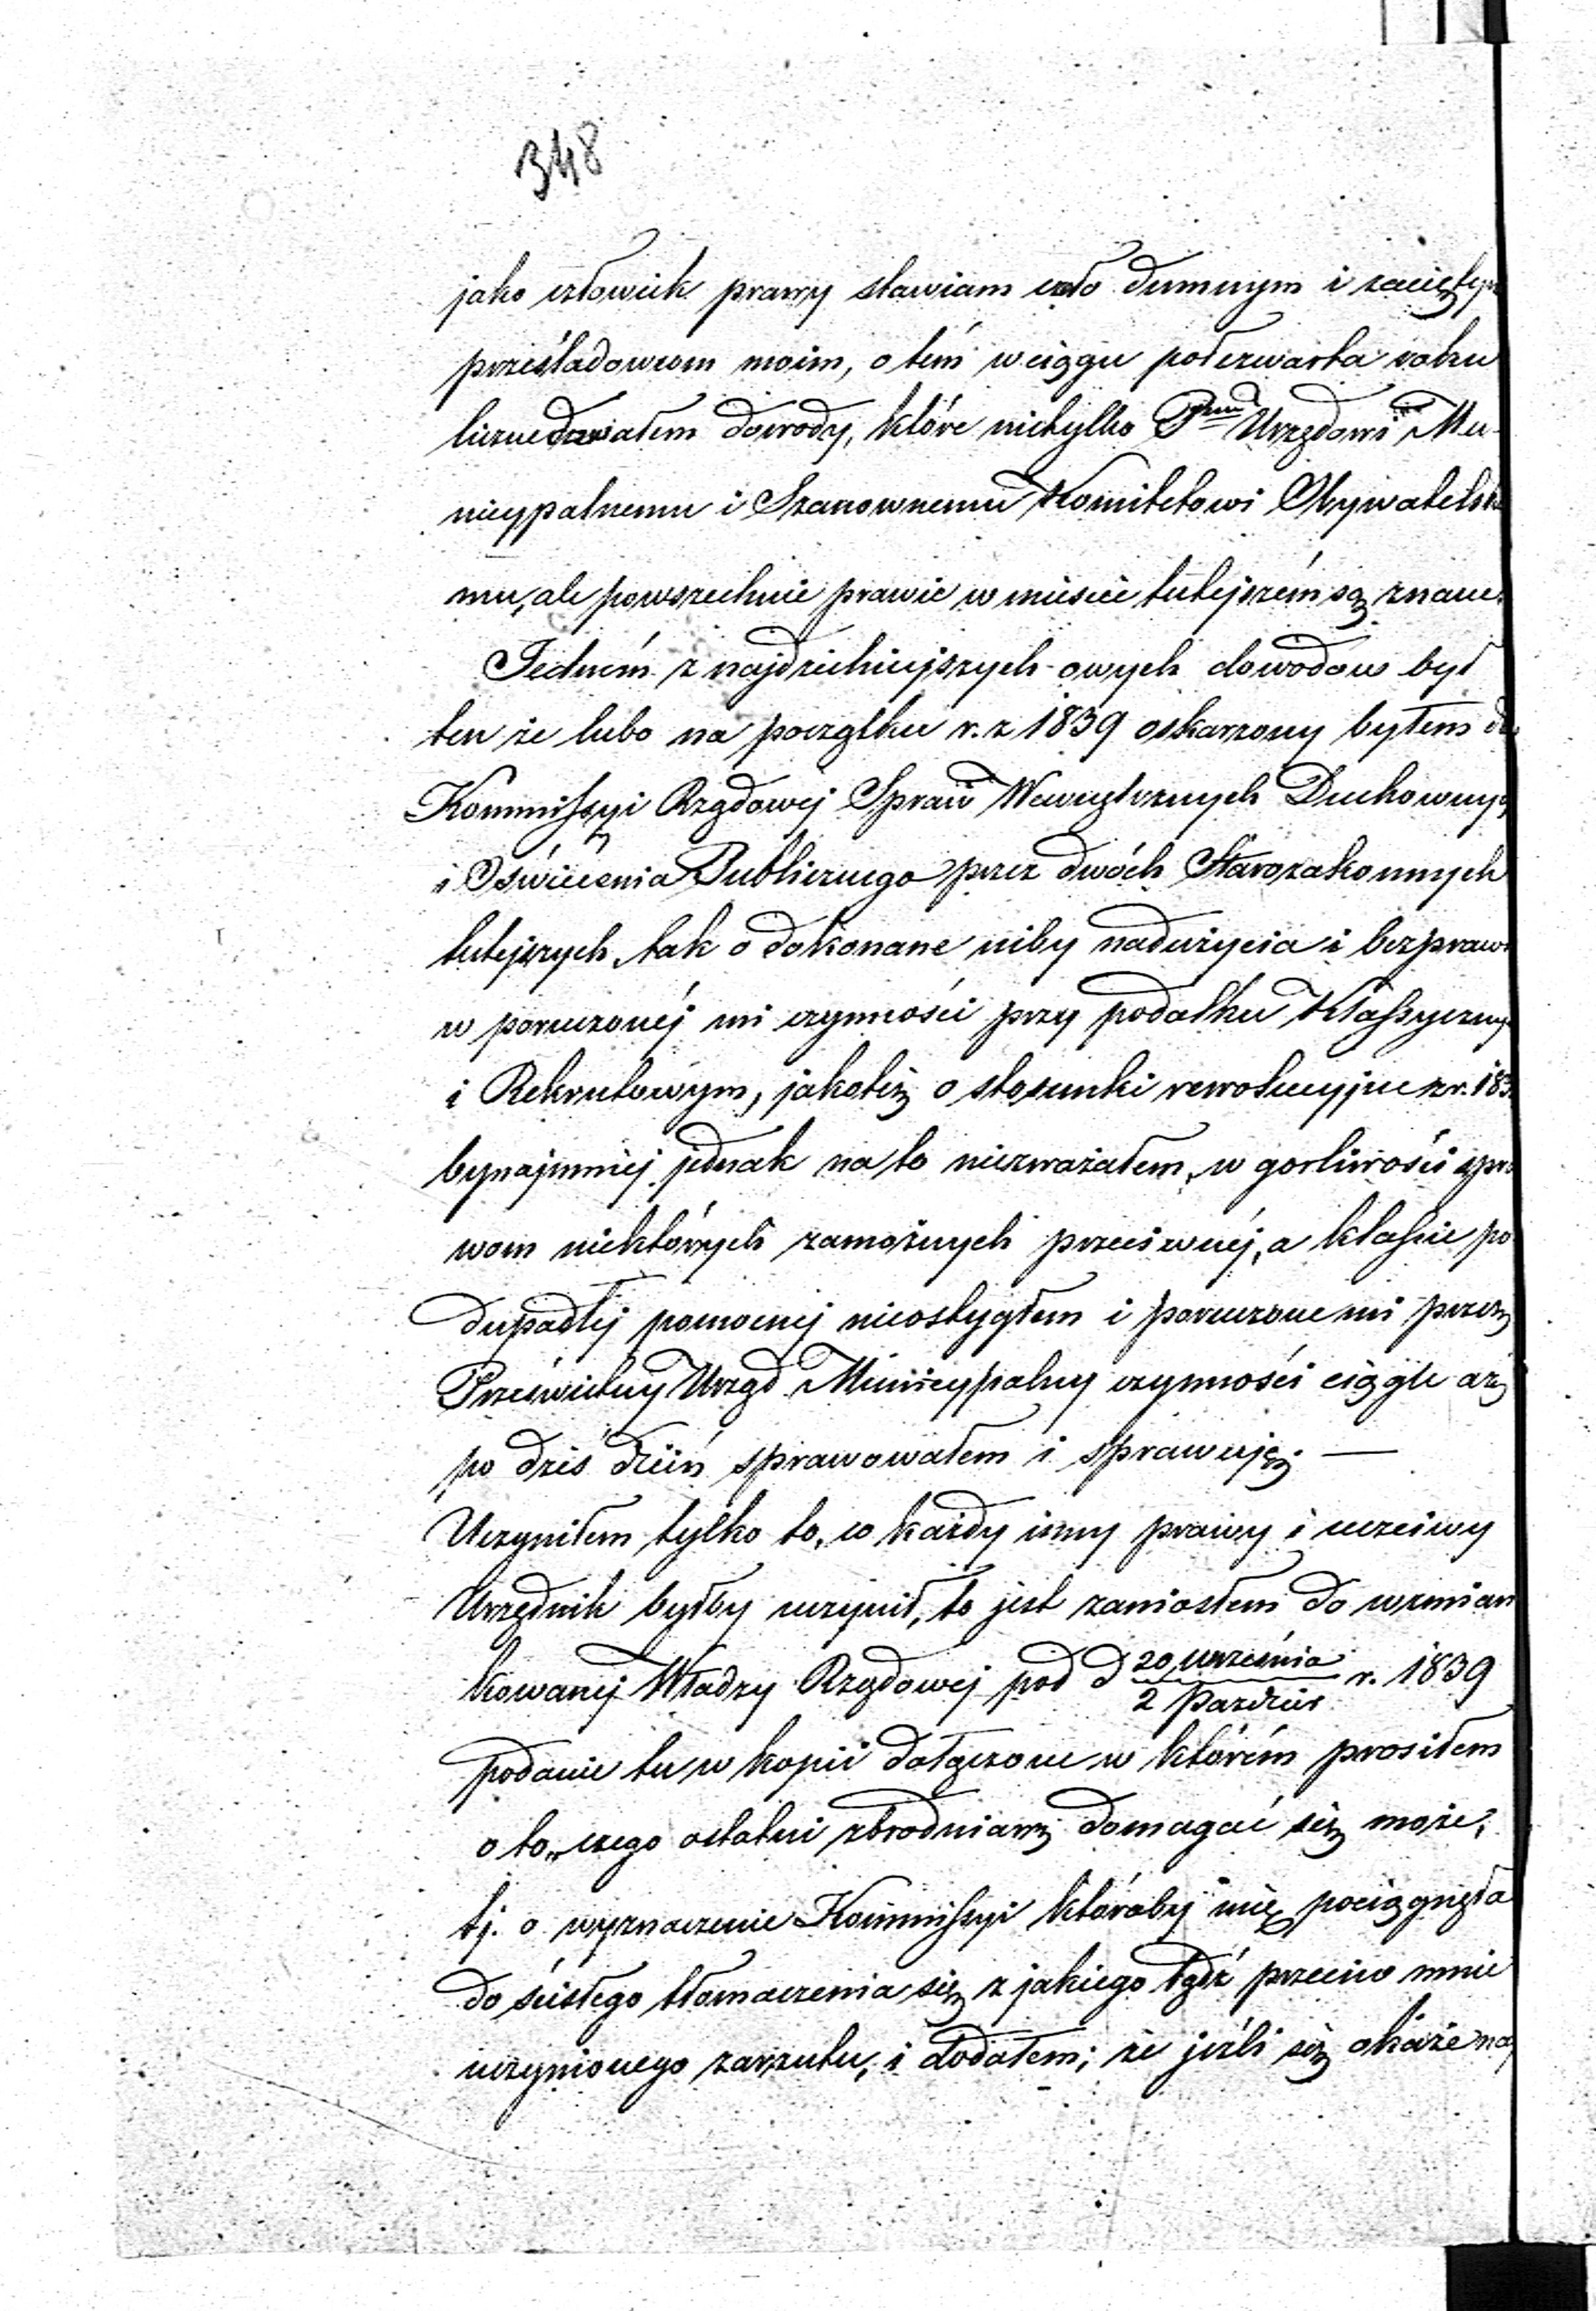 348
jako człowiek prawy stawiam czoło dumnym i zaciętym
prześladowcom moim, o tém w ciągu połczwarta roku
liczne dawałem dowody, które nietylko Urzędowi Mu-
nicypalnemu i Szanownemu Komitetowi Obywatelskie
mu, ale powszechnie prawie w mieście tutejszém są znane.
Jedném z najdzielniejszych owych dowodów był
ten że lubo na początku r. z 1839 oskarzony byłem do
Kommissyi Rządowéj Spraw Wewnętrznych Duchownych
i Oświécenia Publicznego przez dwóch Starozakonnych
tutejszych, tak o dokonane niby nadużycia i bezprawi
w poruczonéj mi czynności przy podatku Klassyczny
i Rekrutowym, jakotéż o stosunki rewolucyjne z r. 183
bynajmniej jednak na to niezważałem, w gorliwości spra
wom niektórych zamożnych przeciwnéj, a klasie po
dupadłéj pomocnéj nieostygłem i poruczone mi przez
Prześwietny Urząd Municypalny czynności ciągle aż
po dziś dzień sprawowałem i sprawuję. —
Uczyniłem tylko to, co każdy inny prawy i uczciwy
Urzędnik byłby uczynił, to jest zaniosłem do wzmian
kowanéj Władzy Rządowéj pod d 20 września / 2 Paździer r. 1839
podanie tu w kopii dołączone w którém prosiłem
o to, czego ostatni zbrodniarz domagać się może,
tj. o wyznaczenie Kommissyi któraby mię pociągnęła
do ścisłego tłomaczenia się z jakiego bądź przeciw mnie
uczynionego zarzutu, i dodałem; że jeźli się okaże na